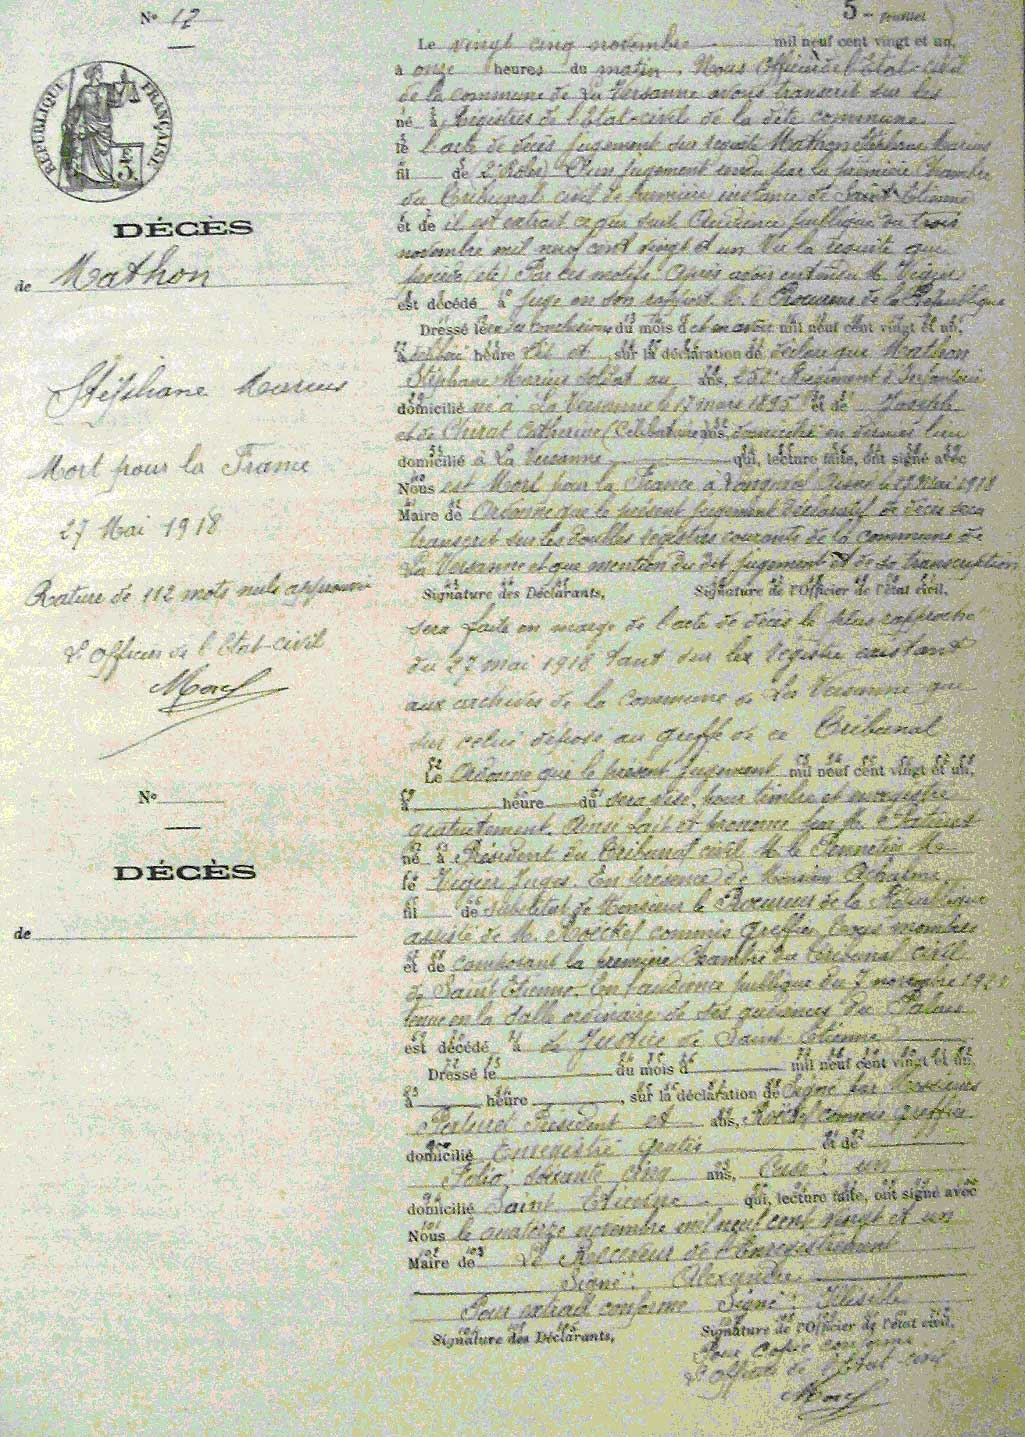 N° 12
RÉPUBLIQUE FRANÇAISE
DÉCÈS
de Mathon
Stéphane Marius
Mort pour la France
27 Mai 1918
Rature de 112 mots nuls
L'officier de l'Etat-civil
N°
DÉCÈS
de
5
Le vingt cinq novembre mil neuf cent vingt et un,
à onze heures du matin. Nous Officier de l'Etat-civil
de la commune de La Versanne avons transcrit sur les
né à Registres de l'Etat-civile de la dite commune
l'acte de décès jugement sur requête Mathon Stéphane Marius
fil de 2 Roles) D'un jugement rendu par la première Chambre
du Tribunal civil de première instance de Saint Etienne
et de il est extrait ce qui suit Audience publique du trois
novembre mil neuf cent vingt et un Vu la requête qui
précède (etc) Par ces motifs. Après avoir entendu M. Vigier
est décédé à Juge en son rapport M. le Procureur de la République
Dressé le en ses conclusions du mois d et en avoir mil neuf cent vingt et un,
à délibéré heure sur la déclaration de déclare que Mathon
Stéphane Marius soldat au ans, Régiment d'Infanterie
domicilié né à La Versanne le 17 mars 1895 et de Joseph
et de Chirat Catherine (Célibataire) ans, domicilié en dernier lieu
domicilié à La Versanne qui, lecture faite, ont signé avec
Nous est Mort pour la France à Aisne le 27 Mai 1918
Maire de Ordonne que le présent jugement déclaratif de décès sera
transcrit sur les doubles registres courants de la commune de
La Versanne et que mention du dit jugement et de sa transcription
Signature des Déclarants, Signature de l'Officier de l'état civil,
sera faite en marge de l'acte de décès le plus rapproché
du 27 mai 1918 tant sur les registre existant
aux archives de la Commune de La Versanne que
sur celui déposé au greffe de ce Tribunal
Le Ordonne que le présent jugement mil neuf cent vingt et un,
à heure du sera visé pour timbre et enregistré
gratuitement. Ainsi fait et prononcé par M.
né à Président du Tribunal civil M. le
Vigier Juges. En présence de Monsieur Achalme
fil de substitut de Monsieur le Procureur de la République
assisté de M. Roeckel commis greffier tous membres
et de composant la première Chambre du Tribunal civil
de Saint Etienne. En l'audience publique du 7 novembre 1921
tenue en la salle ordinaire de ses audiences du Palais
est décédé à de Justice de Saint-Etienne
Dressé le du mois d mil neuf cent vingt et un,
à heure , sur la déclaration de Signé par Messieurs
Président et ans, Roeckel commis greffier
domicilié Enregistré gratis et de
Folio soixante cinq ans, Case : un
domicilié Saint Etienne qui, lecture faite, ont signé avec
Nous le quatorze novembre mil neuf cent vingt et un
Maire de Le Receveur de l'Enregistrement
Signé : Alexandre
Pour extrait conforme Signé : Illisible
Signature des Déclarants, Signature de l'Officier de l'état civil,
Pour copie conforme
L'officier de l'Etat-civil